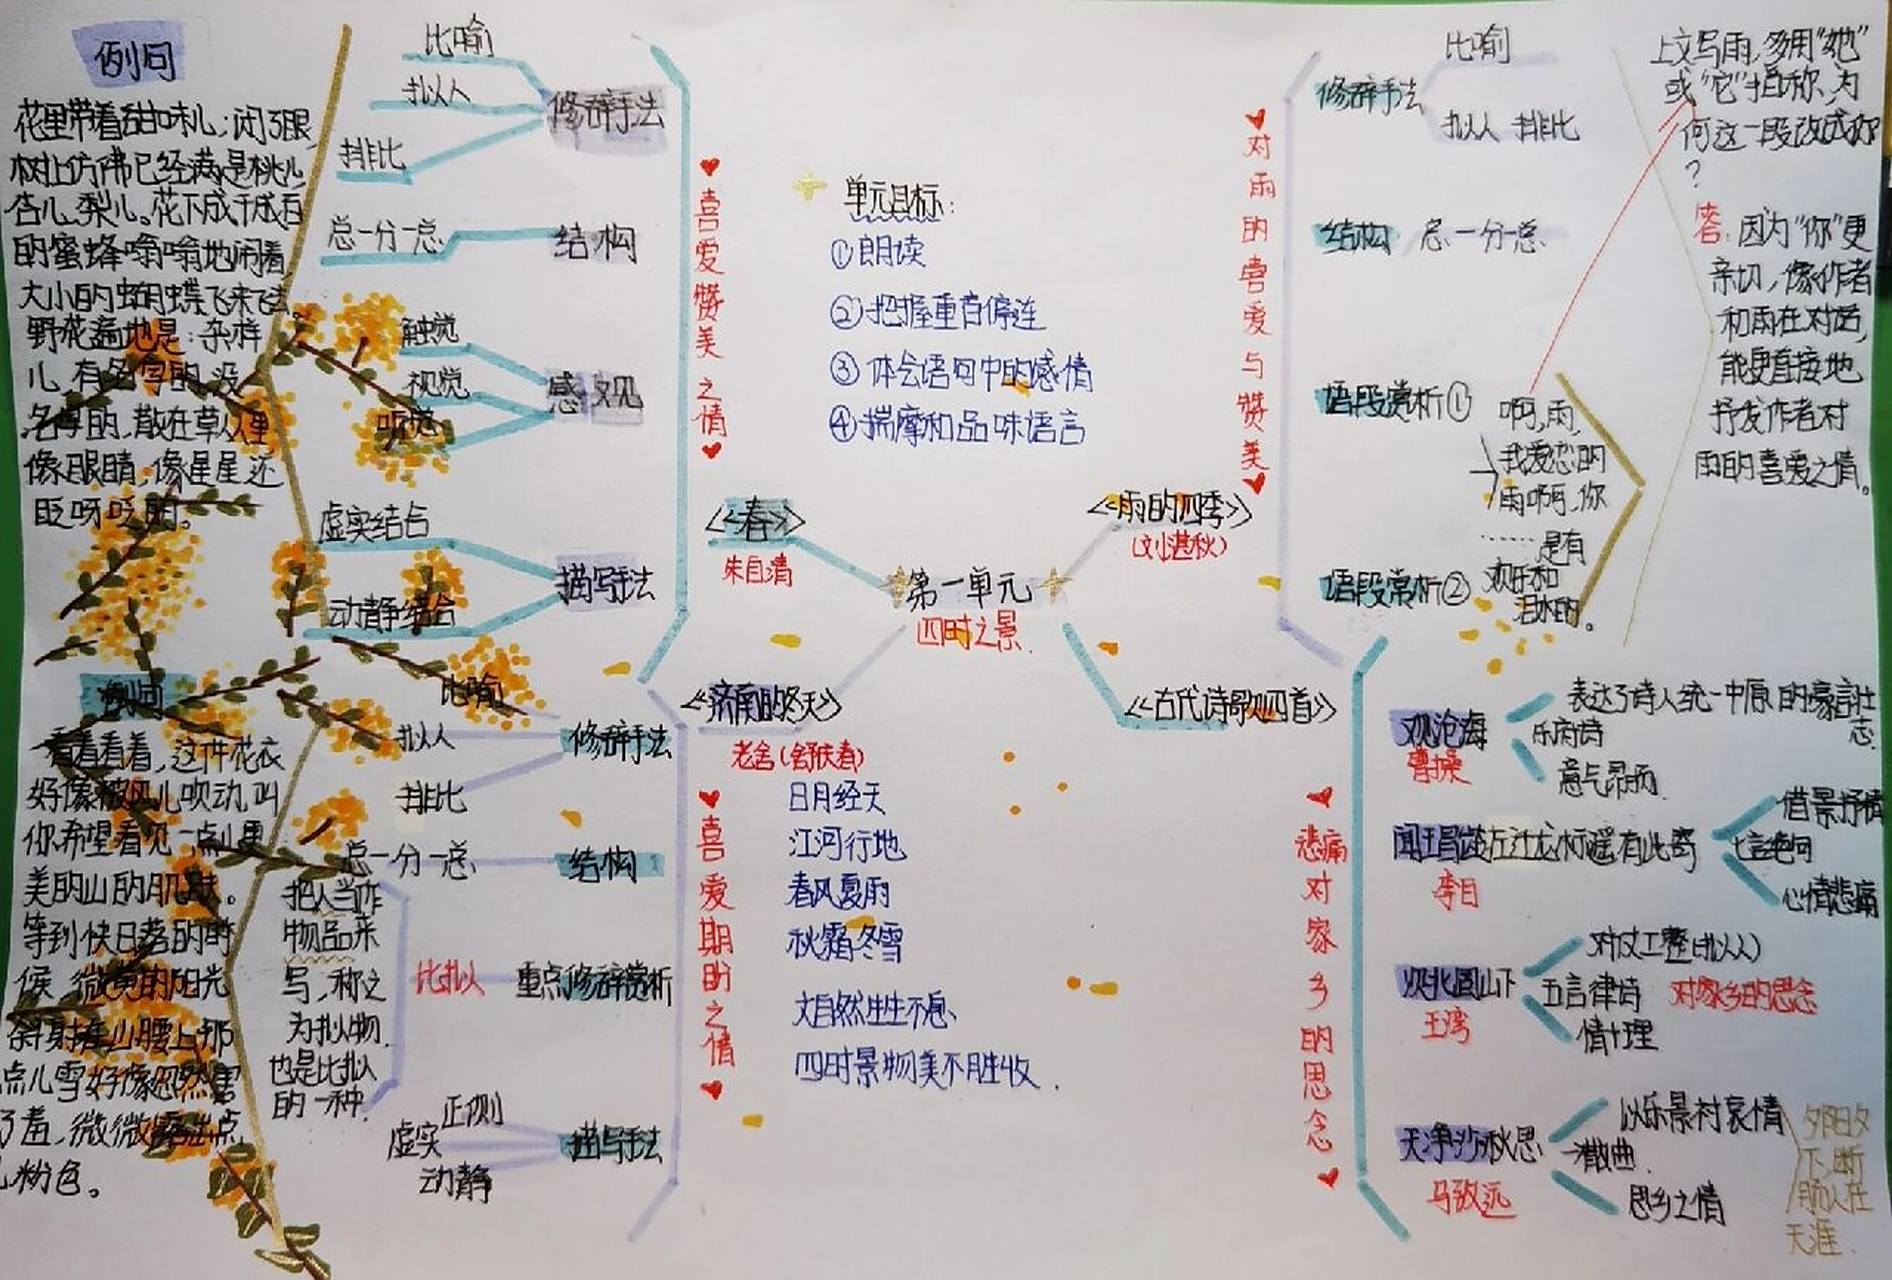 例句
花里带着甜味儿;闭了眼,
树上仿佛已经满是桃儿、
杏儿、梨儿。花下成千成百
的蜜蜂嗡嗡地闹着,
大小的蝴蝶飞来飞去。
野花遍地是:杂样
儿,有名字的,没
名字的,散在草丛里
像眼睛,像星星,还
眨呀眨的。
比喻
拟人
排比
修辞手法
总一分一总
结构
触觉
视觉
听觉
感观
虚实结合
动静结合
描写手法
喜爱赞美之情
《春》
朱自清
单元目标:
①朗读
②把握重音停连
③体会语句中的感情
④揣摩和品味语言
第一单元
四时之景
《雨的四季》
(刘湛秋)
对雨的喜爱与赞美
修辞手法
比喻
拟人 排比
结构
总一分一总
语段赏析①
语段赏析②
啊,雨,
我爱恋的
雨啊,你
……是有
欢乐和
泪水的。
上文写雨,多用“她”
或“它”指称,为
何这一段改成你
?
答:因为“你”更
亲切,像作者
和雨在对话,
能更直接地
抒发作者对
雨的喜爱之情。
例句
看着看着,这件花衣
好像被风儿吹动,叫
你希望看见一点儿更
美的山的肌肤。
等到快日落的时
候,微黄的阳光
斜射在山腰上,那
点儿雪好像忽然害
了羞,微微露出点
儿粉色。
比喻
拟人
排比
修辞手法
总一分一总
结构
把人当作
物品来
写,称之
为拟物.
也是比拟
的一种.
比拟
重点修辞赏析
正侧
虚实
动静
描写手法
喜爱期盼之情
《济南的冬天》
老舍(舒庆春)
日月经天
江河行地
春风夏雨
秋霜冬雪
大自然生生不息、
四时景物美不胜收.
《古代诗歌四首》
悲痛对家乡的思念
观沧海
曹操
表达了诗人统一中原的豪言壮
志.
乐府诗
意气昂扬.
闻王昌龄左迁龙标遥有此寄
李白
借景抒情
七言绝句
心情悲痛
次北固山下
王湾
对仗工整(拟人)
五言律诗
对家乡的思念
情+理
天净沙秋思
马致远
以乐景衬哀情
散曲.
思乡之情
夕阳夕
下,断
肠人在
天涯.